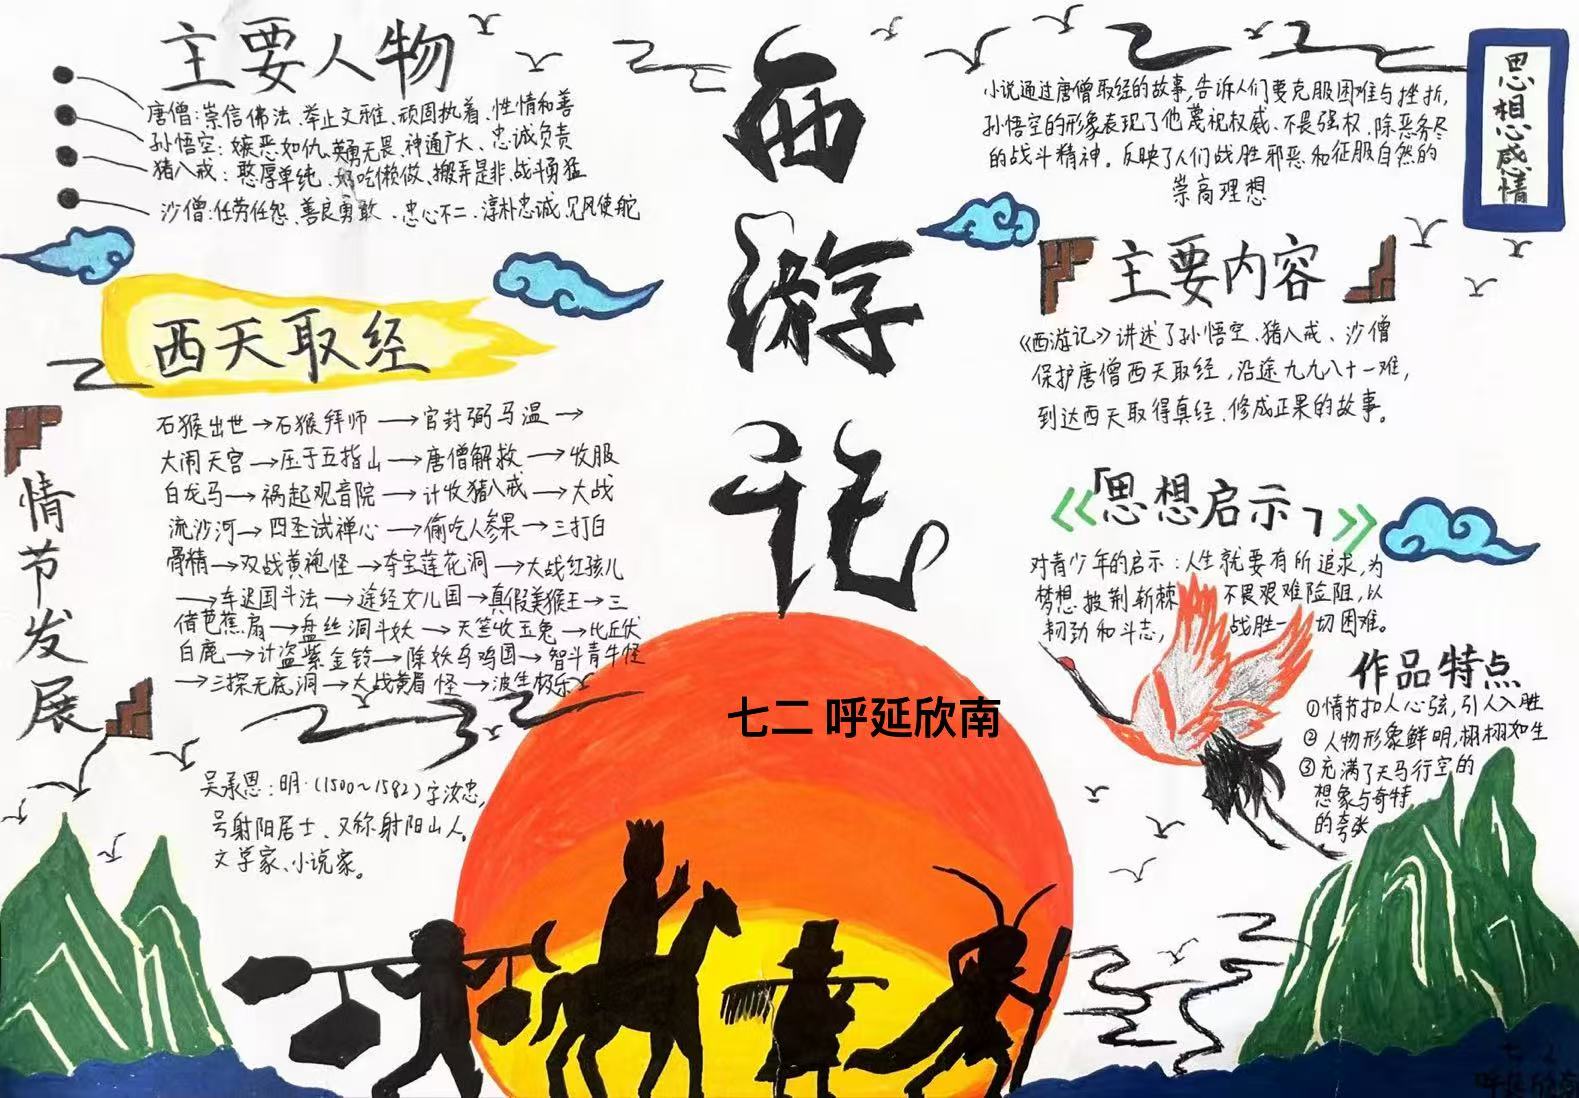 主要人物
唐僧:崇信佛法、举止文雅、顽固执着、性情和善
孙悟空:嫉恶如仇、英勇无畏、神通广大、忠诚负责
猪八戒:憨厚单纯、好吃懒做、搬弄是非、战斗勇猛
沙僧:任劳任怨、善良勇敢、忠心不二、淳朴忠诚、见风使舵
西天取经
情节发展
石猴出世→石猴拜师→官封弼马温→
大闹天宫→压于五指山→唐僧解救→收服
白龙马→祸起观音院→计收猪八戒→大战
流沙河→四圣试禅心→偷吃人参果→三打白
骨精→双战黄袍怪→夺宝莲花洞→大战红孩儿
→车迟国斗法→途经女儿国→真假美猴王→三
借芭蕉扇→盘丝洞斗妖→天竺收玉兔→比丘伏
白鹿→计盗紫金铃→除妖乌鸡国→智斗青牛怪
→三探无底洞→大战黄眉怪→波生极乐
吴承恩:明·(1500~1582)字汝忠,
号射阳居士、又称射阳山人,
文学家、小说家。
西游记
七二 呼延欣南
思想感情
小说通过唐僧取经的故事,告诉人们要克服困难与挫折,
孙悟空的形象表现了他蔑视权威、不畏强权、除恶务尽
的战斗精神。反映了人们战胜邪恶和征服自然的
崇高理想
主要内容
《西游记》讲述了孙悟空、猪八戒、沙僧
保护唐僧西天取经,沿途九九八十一难,
到达西天取得真经、修成正果的故事。
「思想启示」
对青少年的启示:人生就要有所追求,为
梦想披荆斩棘 不畏艰难险阻,以
韧劲和斗志, 战胜一切困难。
作品特点
①情节扣人心弦,引人入胜
②人物形象鲜明,栩栩如生
③充满了天马行空的
想象与奇特
的夸张
七 2
呼延欣南